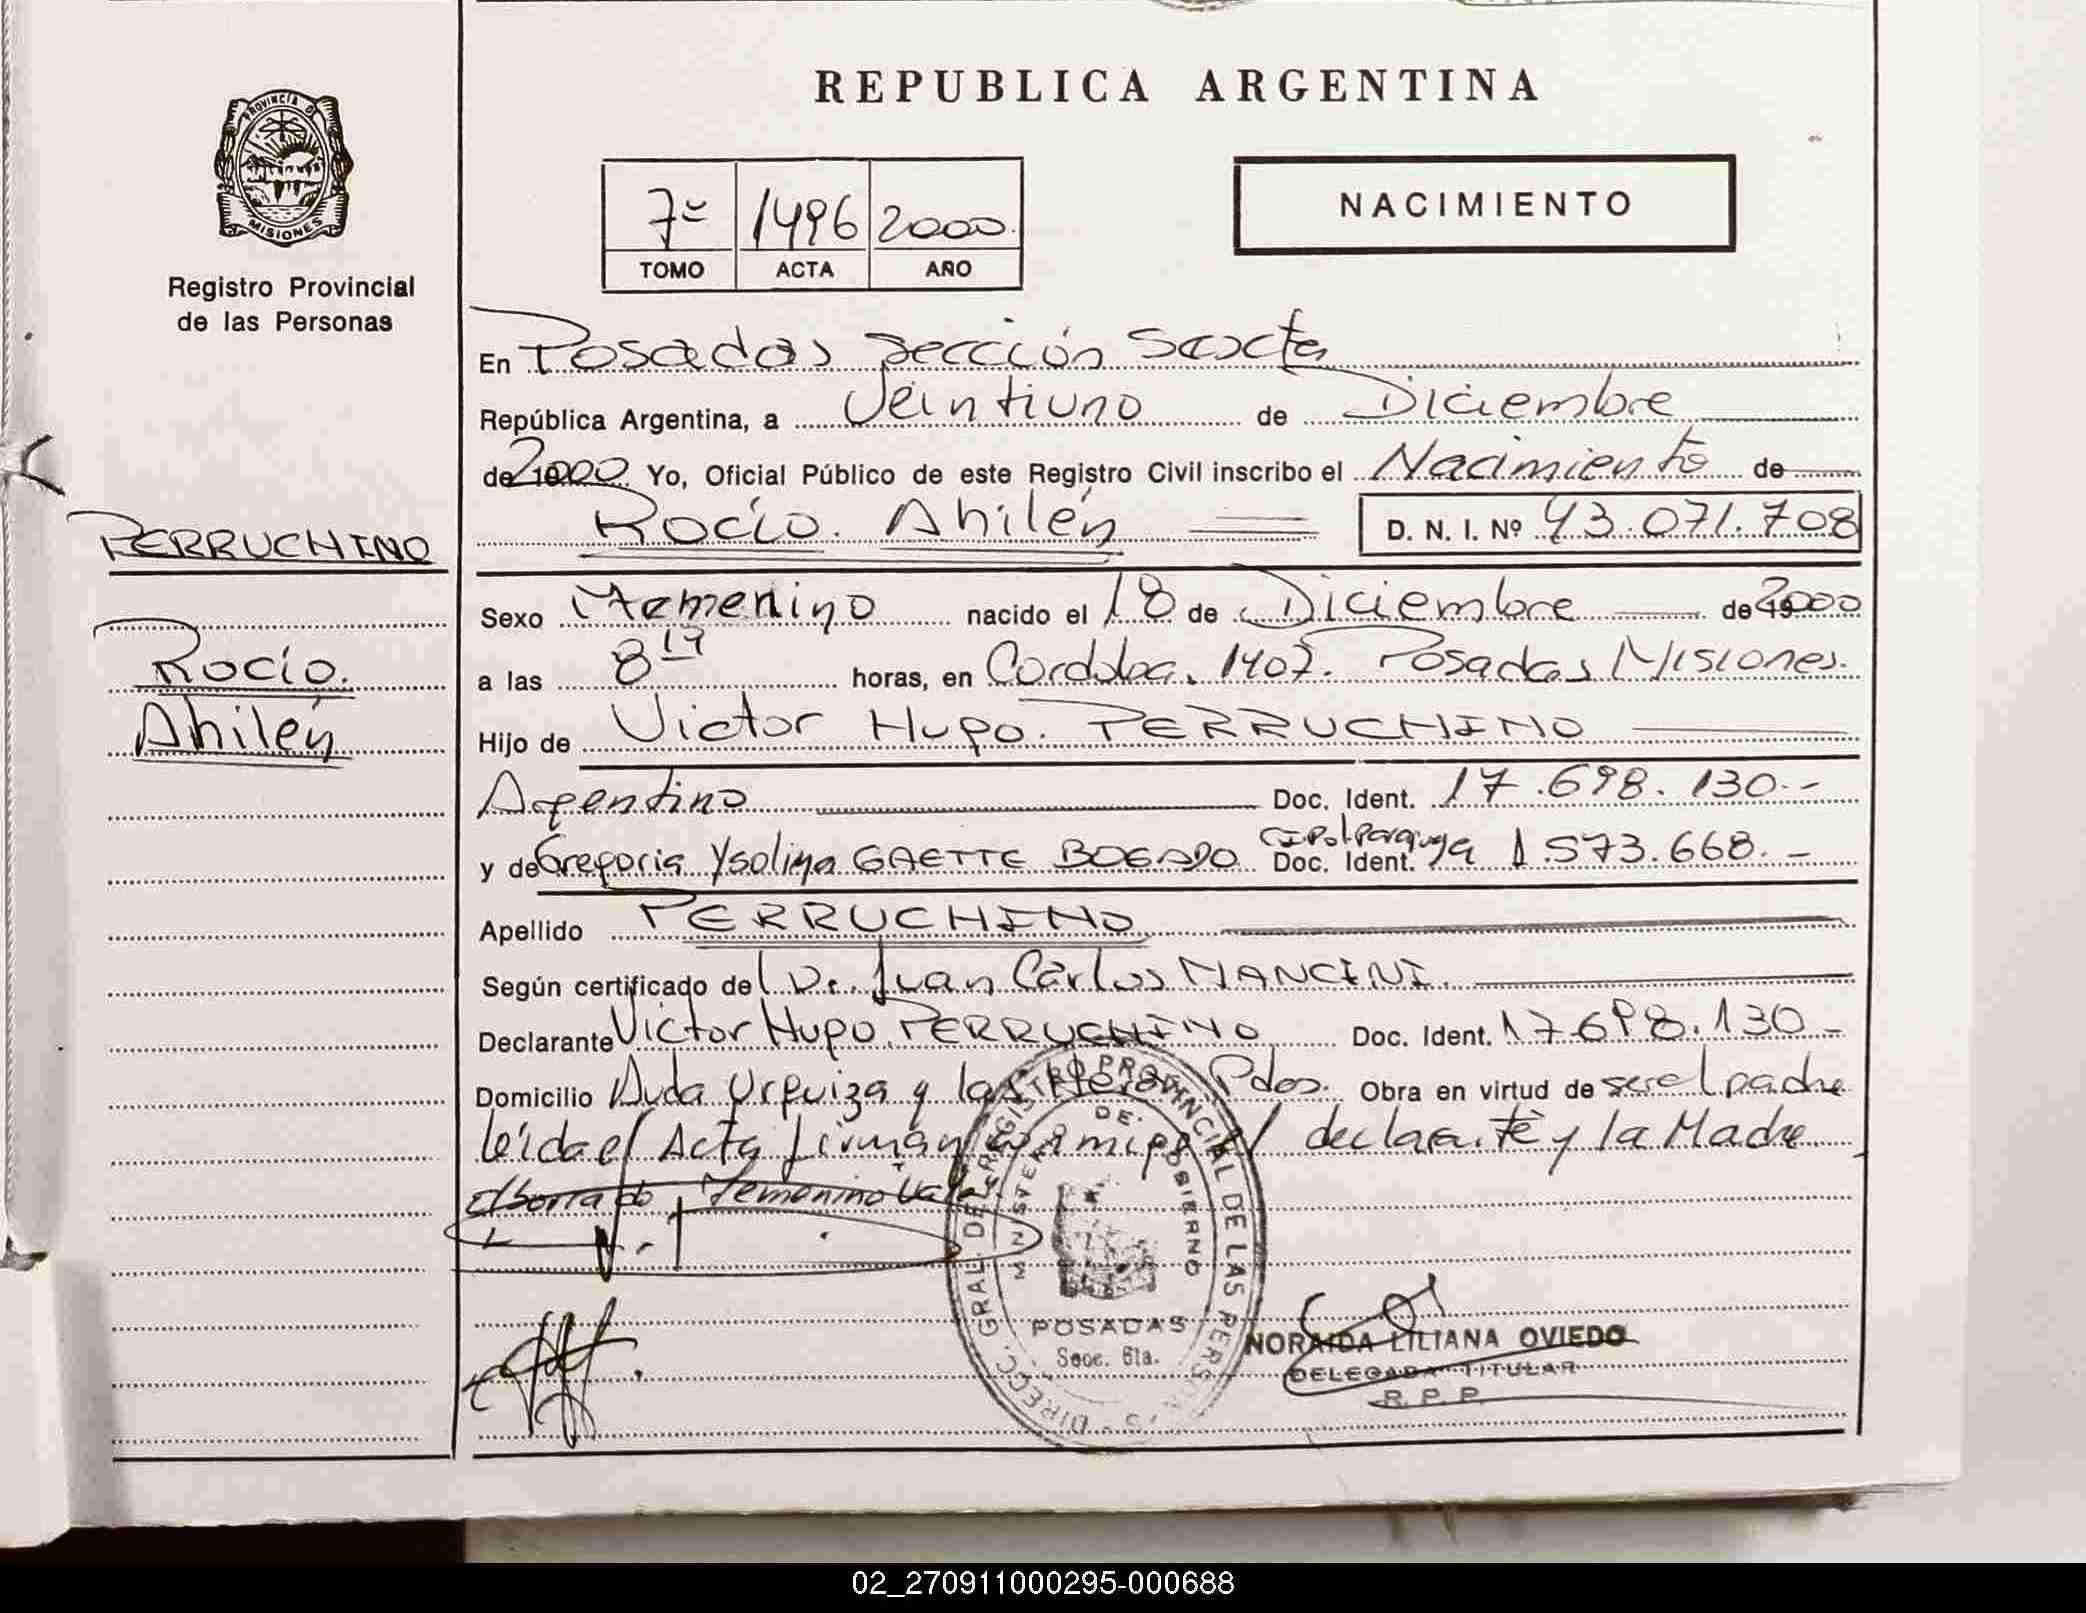 REPUBLICA ARGENTINA
PROVINCIA D
MISIONES
Registro Provincial
de las Personas
7º 1496 2000
TOMO ACTA AÑO
NACIMIENTO
En Posadas Sección Sexta
República Argentina, a Veintiuno de Diciembre
de 2000 Yo, Oficial Público de este Registro Civil inscribo el Nacimiento de
Rocío. Ahilén D. N. I. Nº 43.071.708
PERRUCHINO
Rocío.
Ahilén
Sexo Femenino nacido el 18 de Diciembre de 2000
a las 8 19 horas, en Cordoba. 1407. Posadas Misiones.
Hijo de Victor Hugo. PERRUCHINO
Argentino Doc. Ident. 17.698.130.-
y de Gregoria Ysolina GAETTE BOGADO Doc. Ident. 1.573.668.-
Apellido PERRUCHINO
Según certificado del Dr. Juan Carlos MANCINI.
Declarante Victor Hugo PERRUCHINO Doc. Ident. 17.698.130-
Domicilio Avda Urquiza y las Pdas. Obra en virtud de ser el padre
leída el Acta firman conmigo el declarante y la Madre
El borrado Femenino Vale
DIRECC. GRAL. DEL REGISTRO PROVINCIAL DE LAS PERSONAS
MINISTERIO DE GOBIERNO
POSADAS
Secc. 6ta.
NORAIDA LILIANA OVIEDO
DELEGADA TITULAR
R. P. P.
02_270911000295-000688